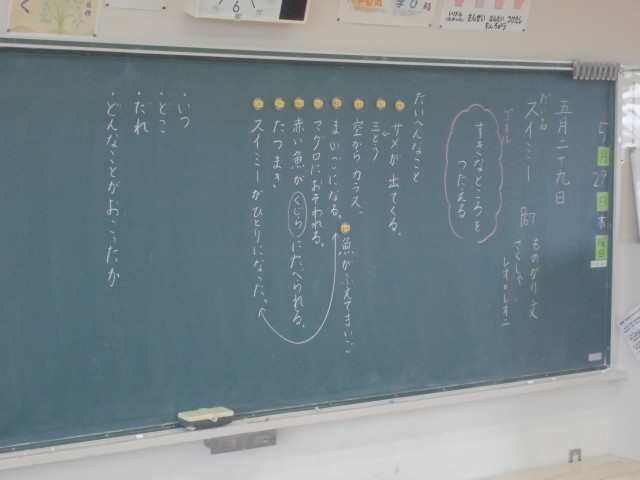 5月29日木曜日
五月二十九日
だい名
スイミー
ものがたり文
さくしゃ
レオ=レオニ
ゴール
すきなところを
つたえる
たいへんなこと
サメが出てくる。
三どう
空からカラス。
まいごになる。
魚がふえてまいご
マグロにおそわれる。
赤い魚がくじらにたべられる。
たつまき
スイミーがひとりになった。
・いつ
・どこ
・だれ
・どんなことがおこったか